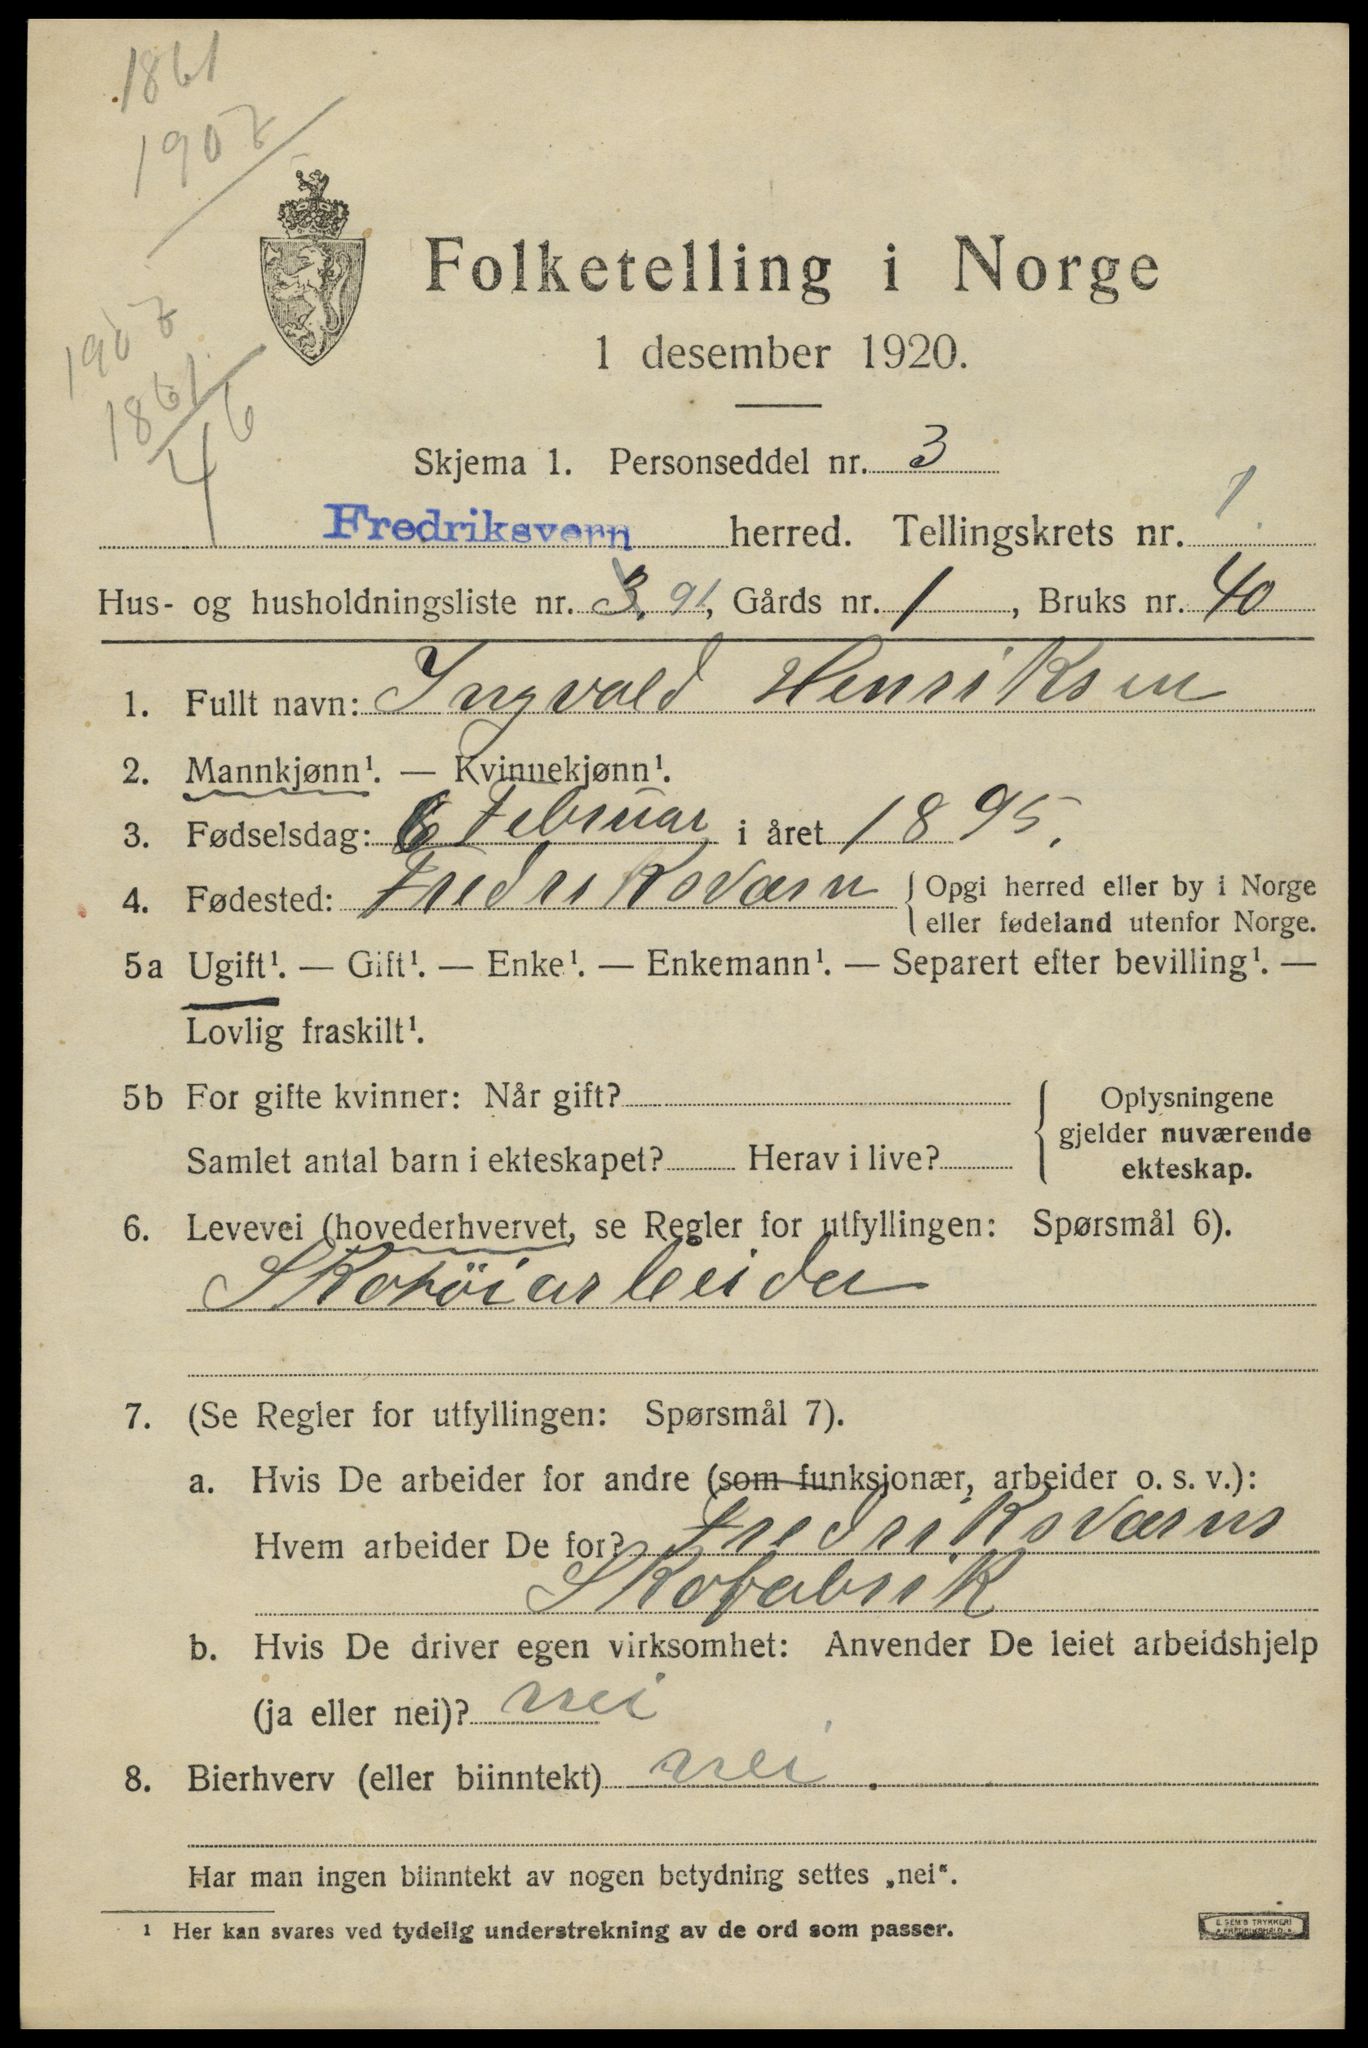 1861
1907
Folketelling i Norge
1 desember 1920.
1907
1861.
46
Skjema 1. Personseddel nr. 3
Fredriksvern herred. Tellingskrets nr. 1.
Hus- og husholdningsliste nr. 3. 91, Gårds nr. 1, Bruks nr. 40
1. Fullt navn: Ingvald Henriksen
2. Mannkjønn¹. — Kvinnekjønn¹.
3. Fødselsdag: 6 Februar i året 1895.
4. Fødested: Fredriksværn { Opgi herred eller by i Norge
eller fødeland utenfor Norge.
5a Ugift¹. — Gift¹. — Enke¹. — Enkemann¹. — Separert efter bevilling¹. —
Lovlig fraskilt¹.
5b For gifte kvinner: Når gift? { Oplysningene
gjelder nuværende
Samlet antal barn i ekteskapet? Herav i live? ekteskap.
6. Levevei (hovederhvervet, se Regler for utfyllingen: Spørsmål 6).
Skotöiarbeider
7. (Se Regler for utfyllingen: Spørsmål 7).
a. Hvis De arbeider for andre (som funksjonær, arbeider o. s. v.):
Hvem arbeider De for? Fredriksværns
Skofabrik
b. Hvis De driver egen virksomhet: Anvender De leiet arbeidshjelp
(ja eller nei)? nei
8. Bierhverv (eller biinntekt) nei.
Har man ingen biinntekt av nogen betydning settes „nei“.
¹ Her kan svares ved tydelig understrekning av de ord som passer.
E. SEM'S TRYKKERI
FREDRIKSHALD